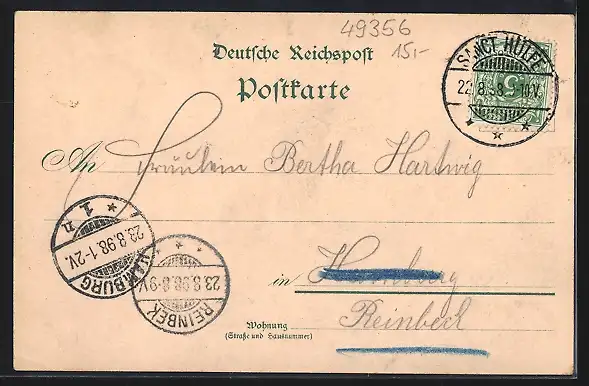 49356
15,-
Deutsche Reichspost
Postkarte
SANCT HÜLFE
22.8.98.
5
An Fräulein Bertha Hartwig
HAMBURG
1. n
23.8.98.1-2V.
REINBEK
23.8.98.8-9V.
in Hamburg
Reinbeck
Wohnung
(Straße und Hausnummer)